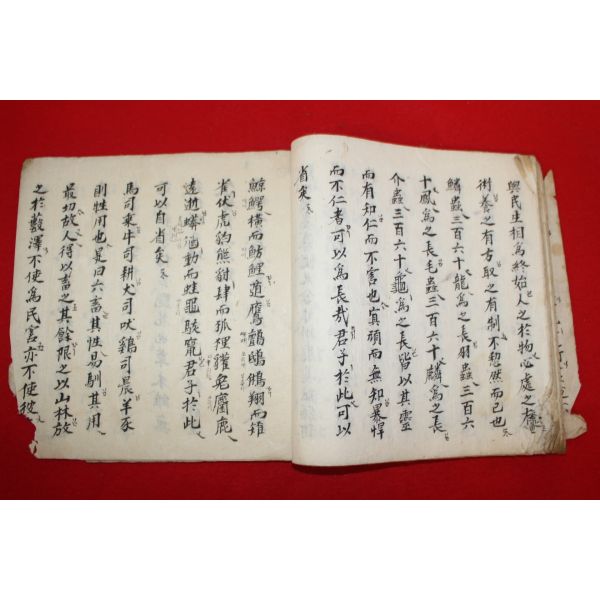 與民生相爲終始人之於物必處之有
術養之有方取之有制不恝然而已也
鱗蟲三百六十龍爲之長羽蟲三百六
十鳳爲之長毛蟲三百六十麟爲之長
介蟲三百六十龜爲之長皆以其靈
而有知仁而不害也冥頑而無知暴悍
而不仁者可以爲長哉君子於此可以
省矣
鯨鰐橫而魴鯉逝鷹鸇鴟鵂翔而雉
雀伏虎豹熊豺肆而狐狸獾兎麕鹿
遠逝蟒虺動而蛙黽駭竄君子於此
可以自省矣
馬司乘牛司耕犬司吠鷄司晨羊豕
則牲用也是曰六畜其性易馴其用
最切故人得以畜之其餘限之以山林放
之於藪澤不使爲民害亦不使彼